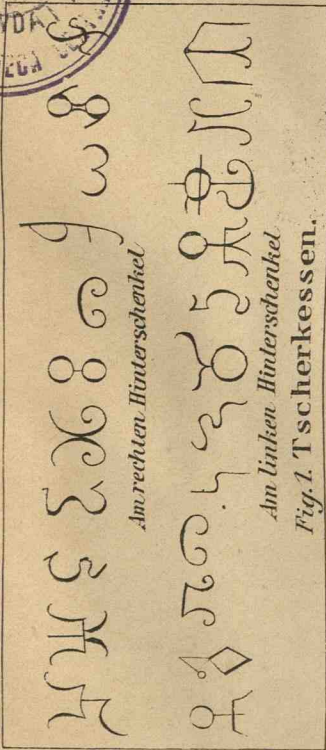 Am rechten Hinterschenkel
Am linken Hinderschenkel
Fig. 1. Tscherkessen.